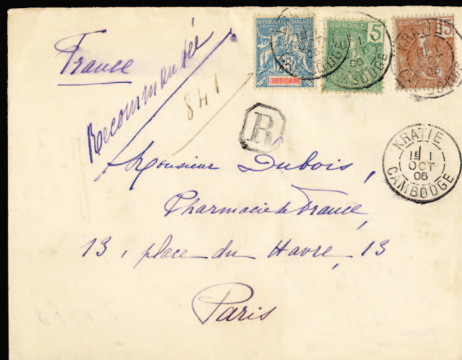 France
Recommandée
841
5
15
INDO-CHINE
R
KRATIE
1
OCT
06
CAMBODGE
Monsieur Dubois,
Pharmacie de France,
13, place du Havre, 13
Paris